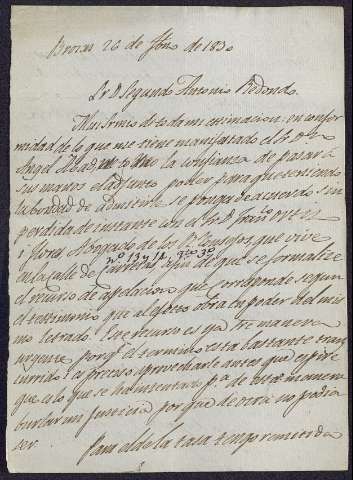 Brozas 26 de Fbro de 1830
Sr D. Segundo Antonio Redondo.
Muy Sr mio de toda mi estimacion: en confor
midad de lo que me tiene manifestado el Sr Dn
Angel Abad, me tomo la confianza de pasar á
sus manos el adjunto poder para que teniendo
la bondad de admitirle se ponga de acuerdo sin
perdida de instante con el Sr D. Franco
i Flores Abogado de los Rs Consejos, que vive
en la calle de Carretas nº 13 y 14 afin de que se formalize
el recurso de apelacion que corresponde segun
el testimonio que al efecto obra en poder del mis
mo Letrado. Este recurso es ya de manera
urgente porqe el termino esta bastante trans
currido i es preciso aprovecharle antes que espire
que es lo que se ha intentado pa de esta manera
burlar mi justicia por que de otra no podia
ser.
Para el de la tasa tengo remitida